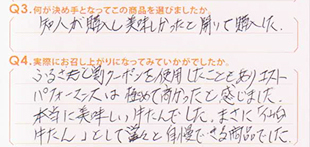 Q3. 何が決め手となってこの商品を選びましたか。
知人が購入し美味しかったと聞いて購入した。
Q4. 実際にお召し上がりになってみていかがでしたか。
ふるさと割クーポンを使用したこともありコスト
パフォーマンスは極めて高かったと感じました。
本当に美味しい牛たんでした。まさに「仙台
牛たん」として堂々と自慢できる商品でした。